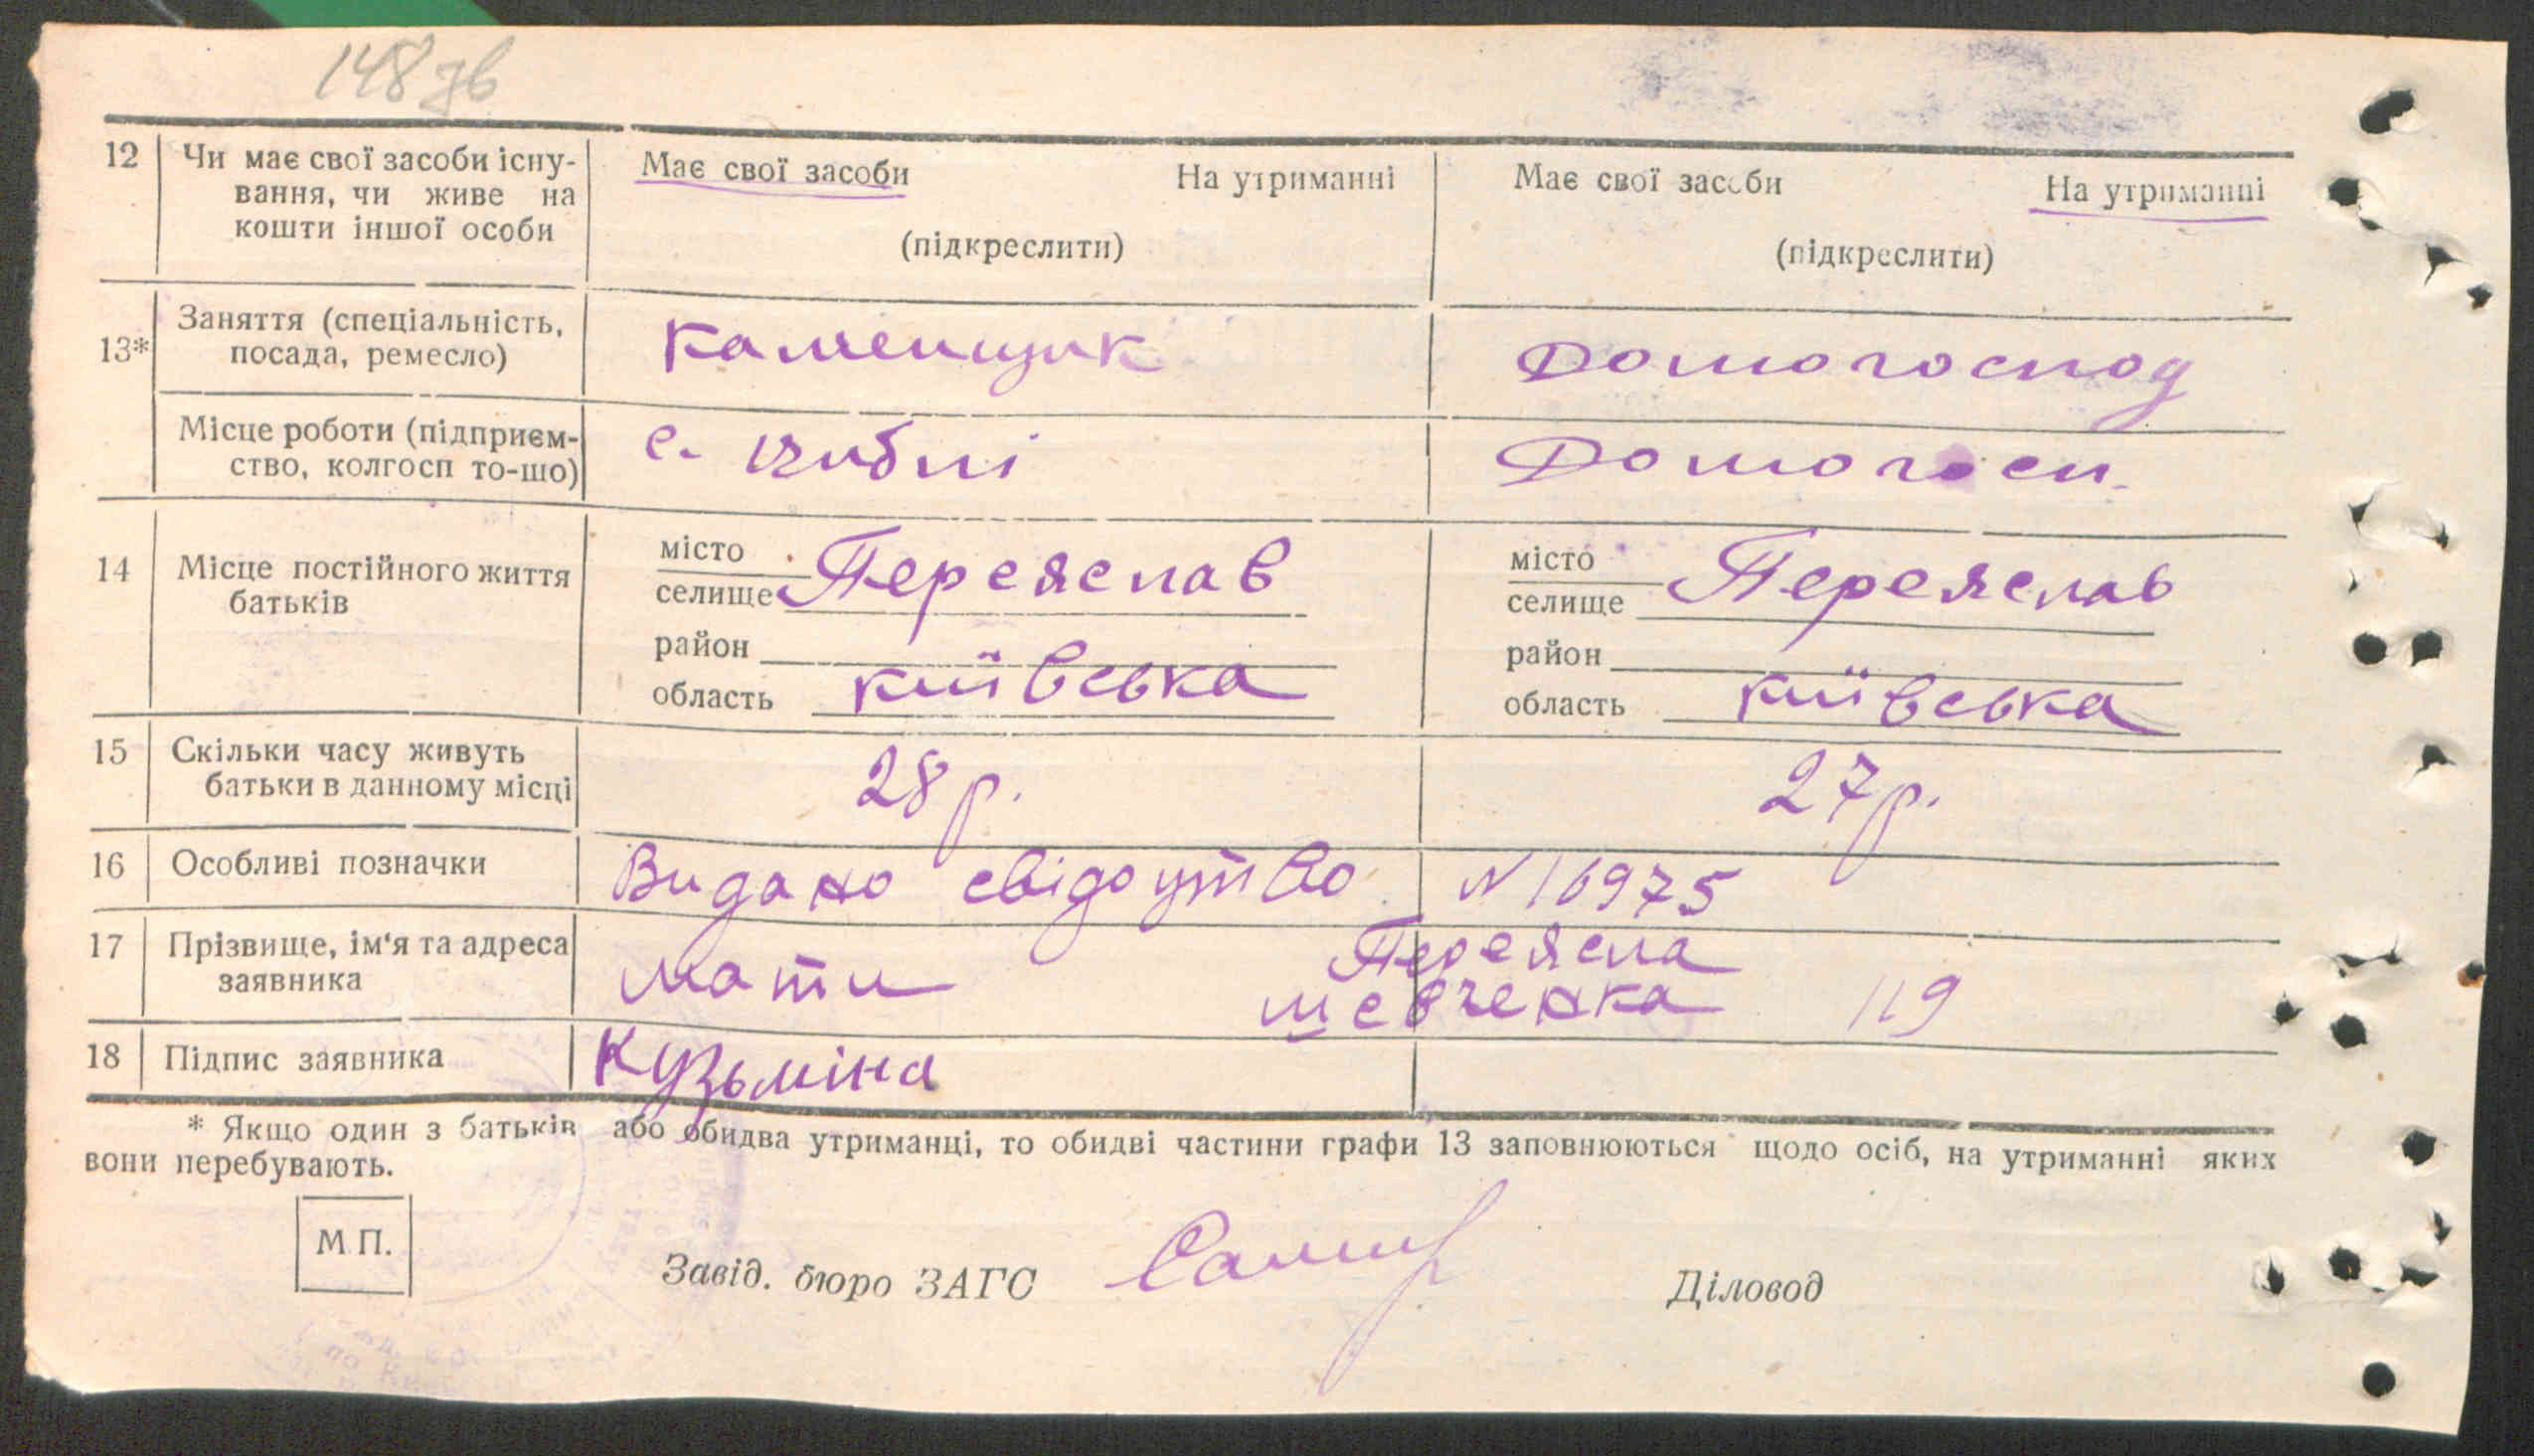 148 зв
12 Чи має свої засоби існу- Має свої засоби На утриманні Має свої засоби На утриманні
вання, чи живе на
кошти іншої особи (підкреслити) (підкреслити)
13* Заняття (спеціальність, Каменщик Домогоспод
посада, ремесло)
Місце роботи (підприєм- с. Циблі Домогосп.
ство, колгосп то-що)
14 Місце постійного життя місто Переяслав місто Переяслав
батьків селище селище
район район
область київська область київська
15 Скільки часу живуть 28 р. 27 р.
батьки в данному місці
16 Особливі позначки Видано свідоцтво N 16975
17 Прізвище, ім'я та адреса мати Переясла
заявника шевченка 119
18 Підпис заявника Кузьміна
* Якщо один з батьків або обидва утриманці, то обидві частини графи 13 заповнюються щодо осіб, на утриманні яких
вони перебувають.
М.П.
Завід. бюро ЗАГС Діловод